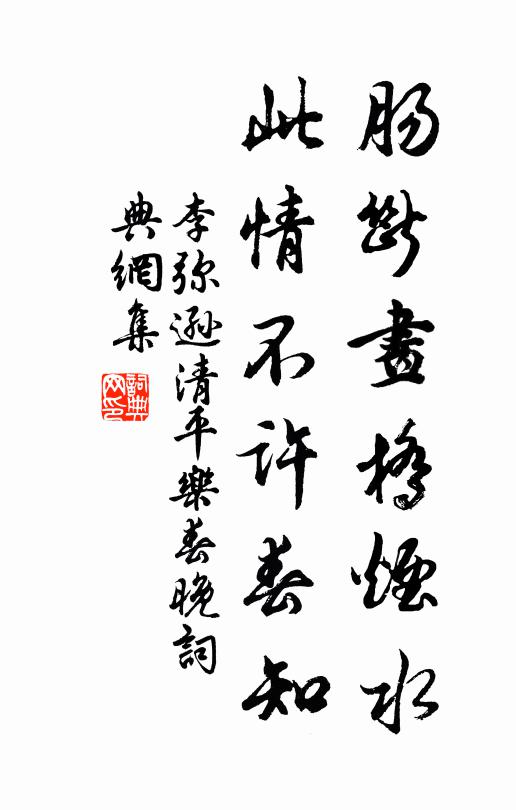 腸斷畫橋煙水
此情不許春知
李弥遜清平樂春晚詞
典網集
詞典
网印